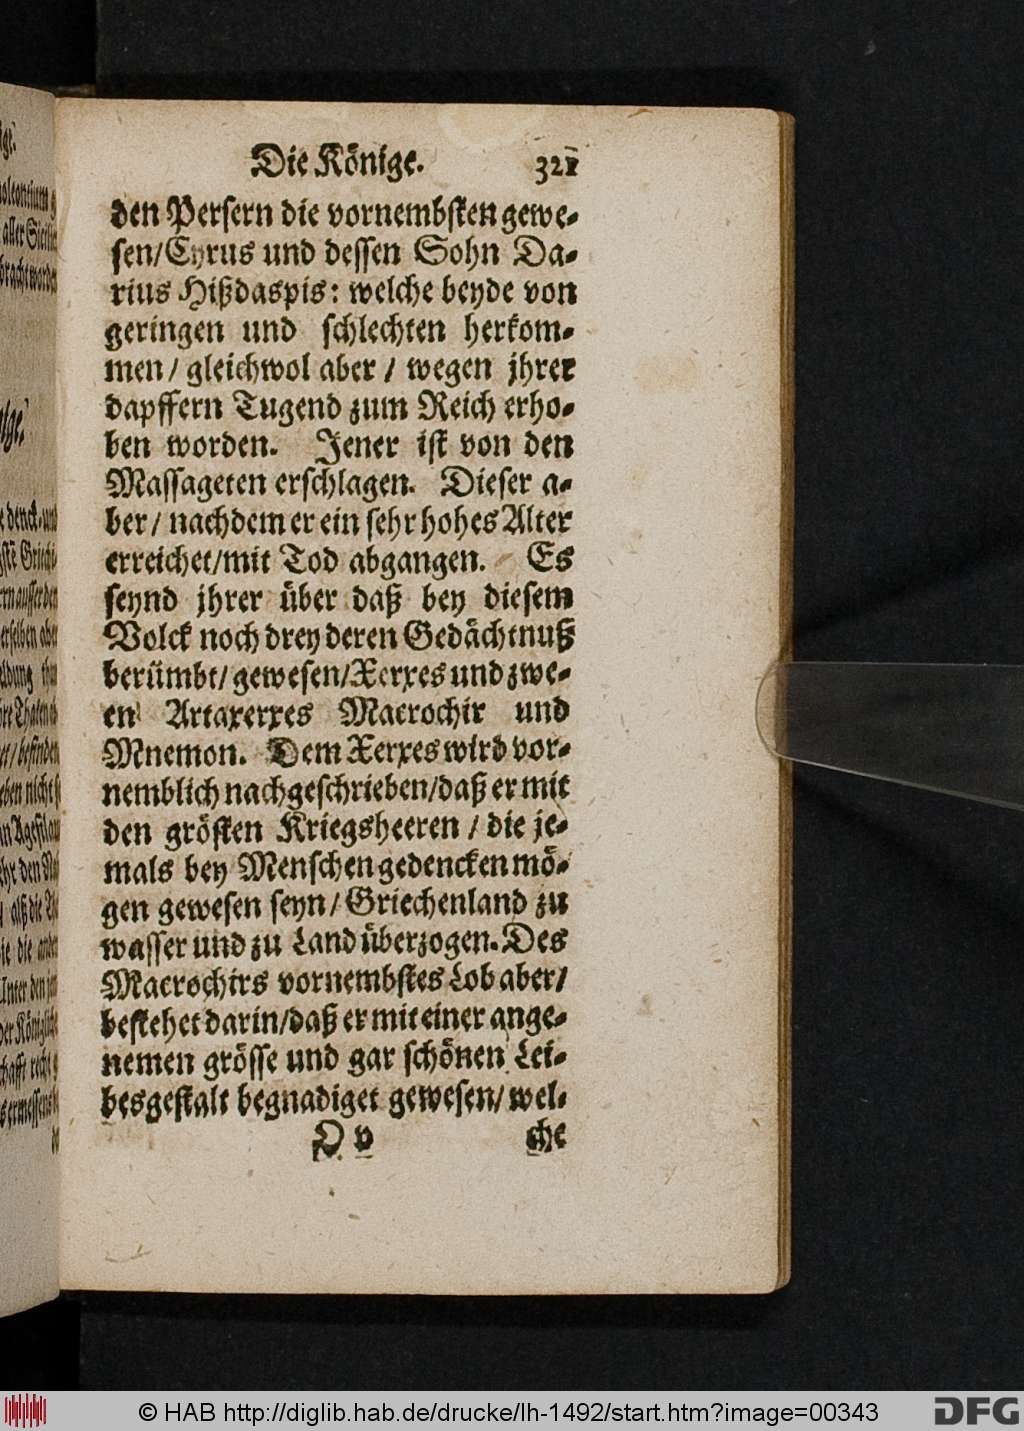 Die Könige. 321
den Persern die vornembsten gewe-
sen/Cyrus und dessen Sohn Da-
rius Hißdaspis: welche beyde von
geringen und schlechten herkom-
men / gleichwol aber / wegen jhrer
dapffern Tugend zum Reich erho-
ben worden. Jener ist von den
Massageten erschlagen. Dieser a-
ber / nachdem er ein sehr hohes Alter
erreichet/mit Tod abgangen. Es
seynd jhrer über daß bey diesem
Volck noch drey deren Gedächtnuß
berümbt/ gewesen/Xerxes und zwe-
en Artaxerxes Macrochir und
Mnemon. Dem Xerxes wird vor-
nemblich nachgeschrieben/daß er mit
den grösten Kriegsheeren / die je-
mals bey Menschen gedencken mö-
gen gewesen seyn/ Griechenland zu
wasser und zu Land überzogen. Des
Macrochirs vornembstes Lob aber/
bestehet darin/daß er mit einer ange-
nemen grösse und gar schönen Lei-
besgestalt begnadiget gewesen/ wel-
O v che
© HAB http://diglib.hab.de/drucke/lh-1492/start.htm?image=00343
DFG